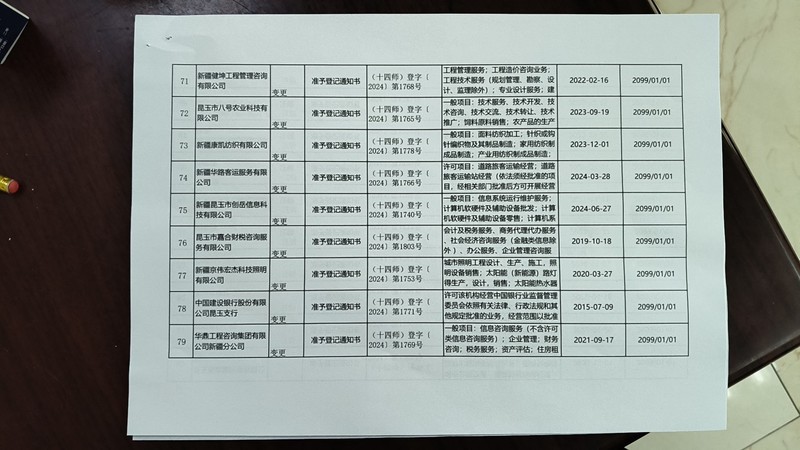 71
新疆健坤工程管理咨询
有限公司
变更
准予登记通知书
（十四师）登字〔
2024〕第1768号
工程管理服务；工程造价咨询业务；
工程技术服务（规划管理、勘察、设
计、监理除外）；专业设计服务；建
2022-02-16
2099/01/01
72
昆玉市八号农业科技有
限公司
变更
准予登记通知书
（十四师）登字〔
2024〕第1765号
一般项目：技术服务、技术开发、技
术咨询、技术交流、技术转让、技术
推广；饲料原料销售；农产品的生产
2023-09-19
2099/01/01
73
新疆康凯纺织有限公司
变更
准予登记通知书
（十四师）登字〔
2024〕第1778号
一般项目：面料纺织加工；针织或钩
针编织物及其制品制造；家用纺织制
成品制造；产业用纺织制成品制造；
2023-12-01
2099/01/01
74
新疆华路客运服务有限
公司
变更
准予登记通知书
（十四师）登字〔
2024〕第1766号
许可项目：道路旅客运输经营；道路
旅客运输站经营（依法须经批准的项
目，经相关部门批准后方可开展经营
2024-03-28
2099/01/01
75
新疆昆玉市创岳信息科
技有限公司
变更
准予登记通知书
（十四师）登字〔
2024〕第1740号
一般项目：信息系统运行维护服务；
计算机软硬件及辅助设备批发；计算
机软硬件及辅助设备零售；计算机系
2024-06-27
2099/01/01
76
昆玉市嘉合财税咨询服
务有限公司
变更
准予登记通知书
（十四师）登字〔
2024〕第1803号
会计及税务服务、商务代理代办服务
、社会经济咨询服务（金融类信息除
外）、办公服务、企业管理咨询服
2019-10-18
2099/01/01
77
新疆京伟宏杰科技照明
有限公司
变更
准予登记通知书
（十四师）登字〔
2024〕第1753号
城市照明工程设计、生产、施工，照
明设备销售；太阳能（新能源）路灯
得生产，设计，销售；太阳能热水器
2020-03-27
2099/01/01
78
中国建设银行股份有限
公司昆玉支行
变更
准予登记通知书
（十四师）登字〔
2024〕第1771号
许可该机构经营中国银行业监督管理
委员会依照有关法律、行政法规和其
他规定批准的业务，经营范围以批准
2015-07-09
2099/01/01
79
华鼎工程咨询集团有限
公司新疆分公司
变更
准予登记通知书
（十四师）登字〔
2024〕第1769号
一般项目：信息咨询服务（不含许可
类信息咨询服务）；企业管理；财务
咨询；税务服务；资产评估；住房租
2021-09-17
2099/01/01